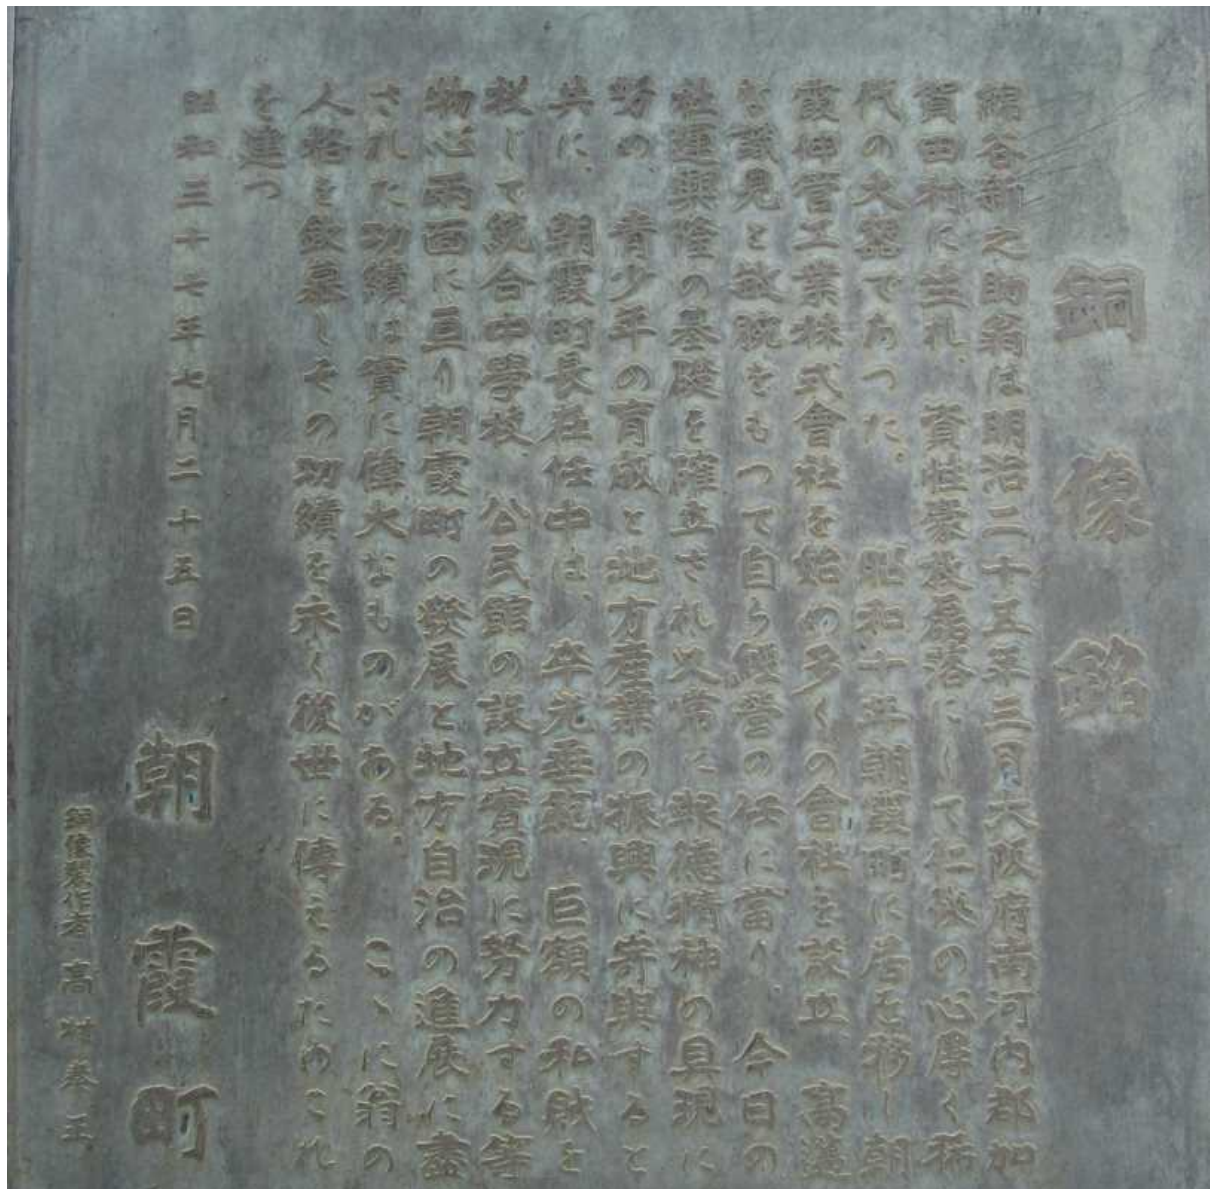 銅像銘
綿谷新之助翁は明治二十五年三月大阪府南河内郡加
賀田村に生れ、資性豪放磊落にして仁俠の心厚く稀
代の大器であつた。昭和十年朝霞町に居を移し朝
霞伸管工業株式會社を始め多くの會社を設立 高邁
な識見と敏腕をもつて自ら經營の任に當り、今日の
社運興隆の基礎を確立され又常に報徳精神の具現に
努め、青少年の育成と地方産業の振興に寄與すると
共に、朝霞町長在任中は、卒先垂範、巨額の私財を
投じて統合中學校、公民館の設立實現に努力する等
物心両面に亘り朝霞町の發展と地方自治の進展に盡
された功績は實に偉大なものがある。こゝに翁の
人格を敬慕しその功績を永く後世に傳えるためこれ
を建つ
昭和三十七年七月二十五日
朝霞町
銅像製作者 高村泰正